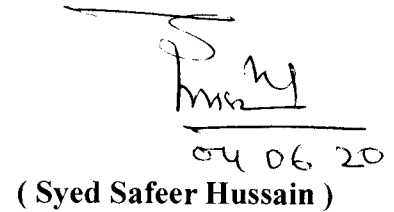 04 06 20
( Syed Safeer Hussain )